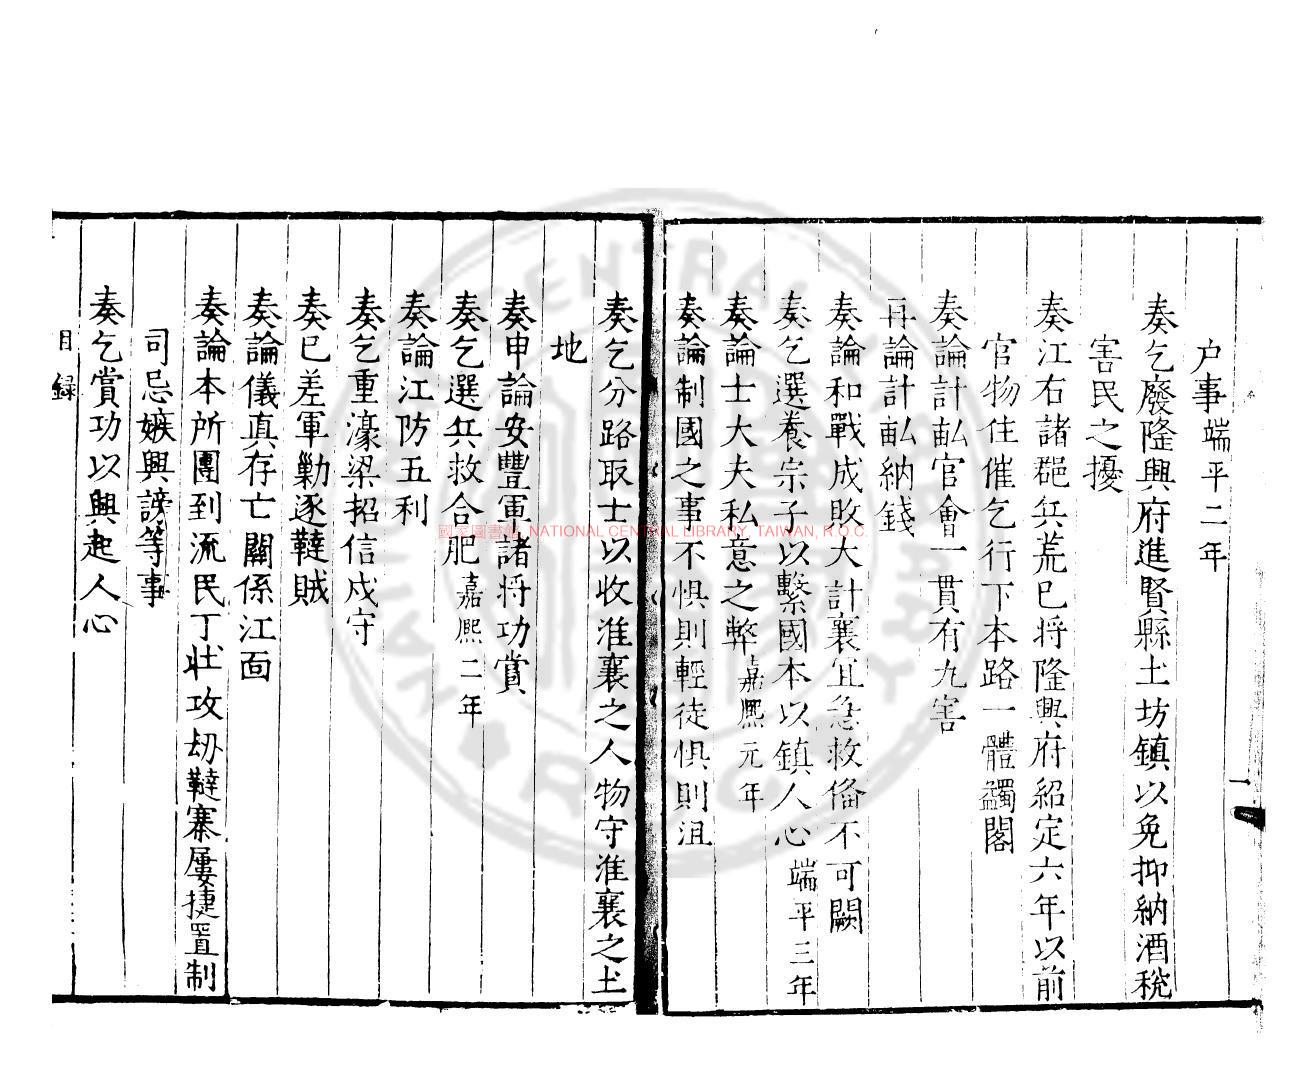 户事端平二年
奏乞廢隆興府進賢縣土坊鎮以免抑納酒稅
害民之擾
奏江右諸郡兵荒已將隆興府紹定六年以前
官物住催乞行下本路一體蠲閣
奏論計畝官會一貫有九害
再論計畝納錢
奏論和戰成敗大計襄宜急救備不可闕
奏乞選養宗子以繫國本以鎮人心端平三年
奏論士大夫私意之弊嘉熙元年
奏論制國之事不惧則輕徒惧則沮
奏乞分路取士以收淮襄之人物守淮襄之土
地
奏申論安豐軍諸将功賞
奏乞選兵救合肥嘉熙二年
奏論江防五利
奏乞重濠梁招信戍守
奏已差軍勦逐韃賊
奏論儀真存亡關係江面
奏論本所團到流民丁壮攻劫韃寨屢捷置制
司忌嫉興謗等事
奏乞賞功以興起人心
目録
一
國家圖書館 NATIONAL CENTRAL LIBRARY, TAIWAN, R.O.C.